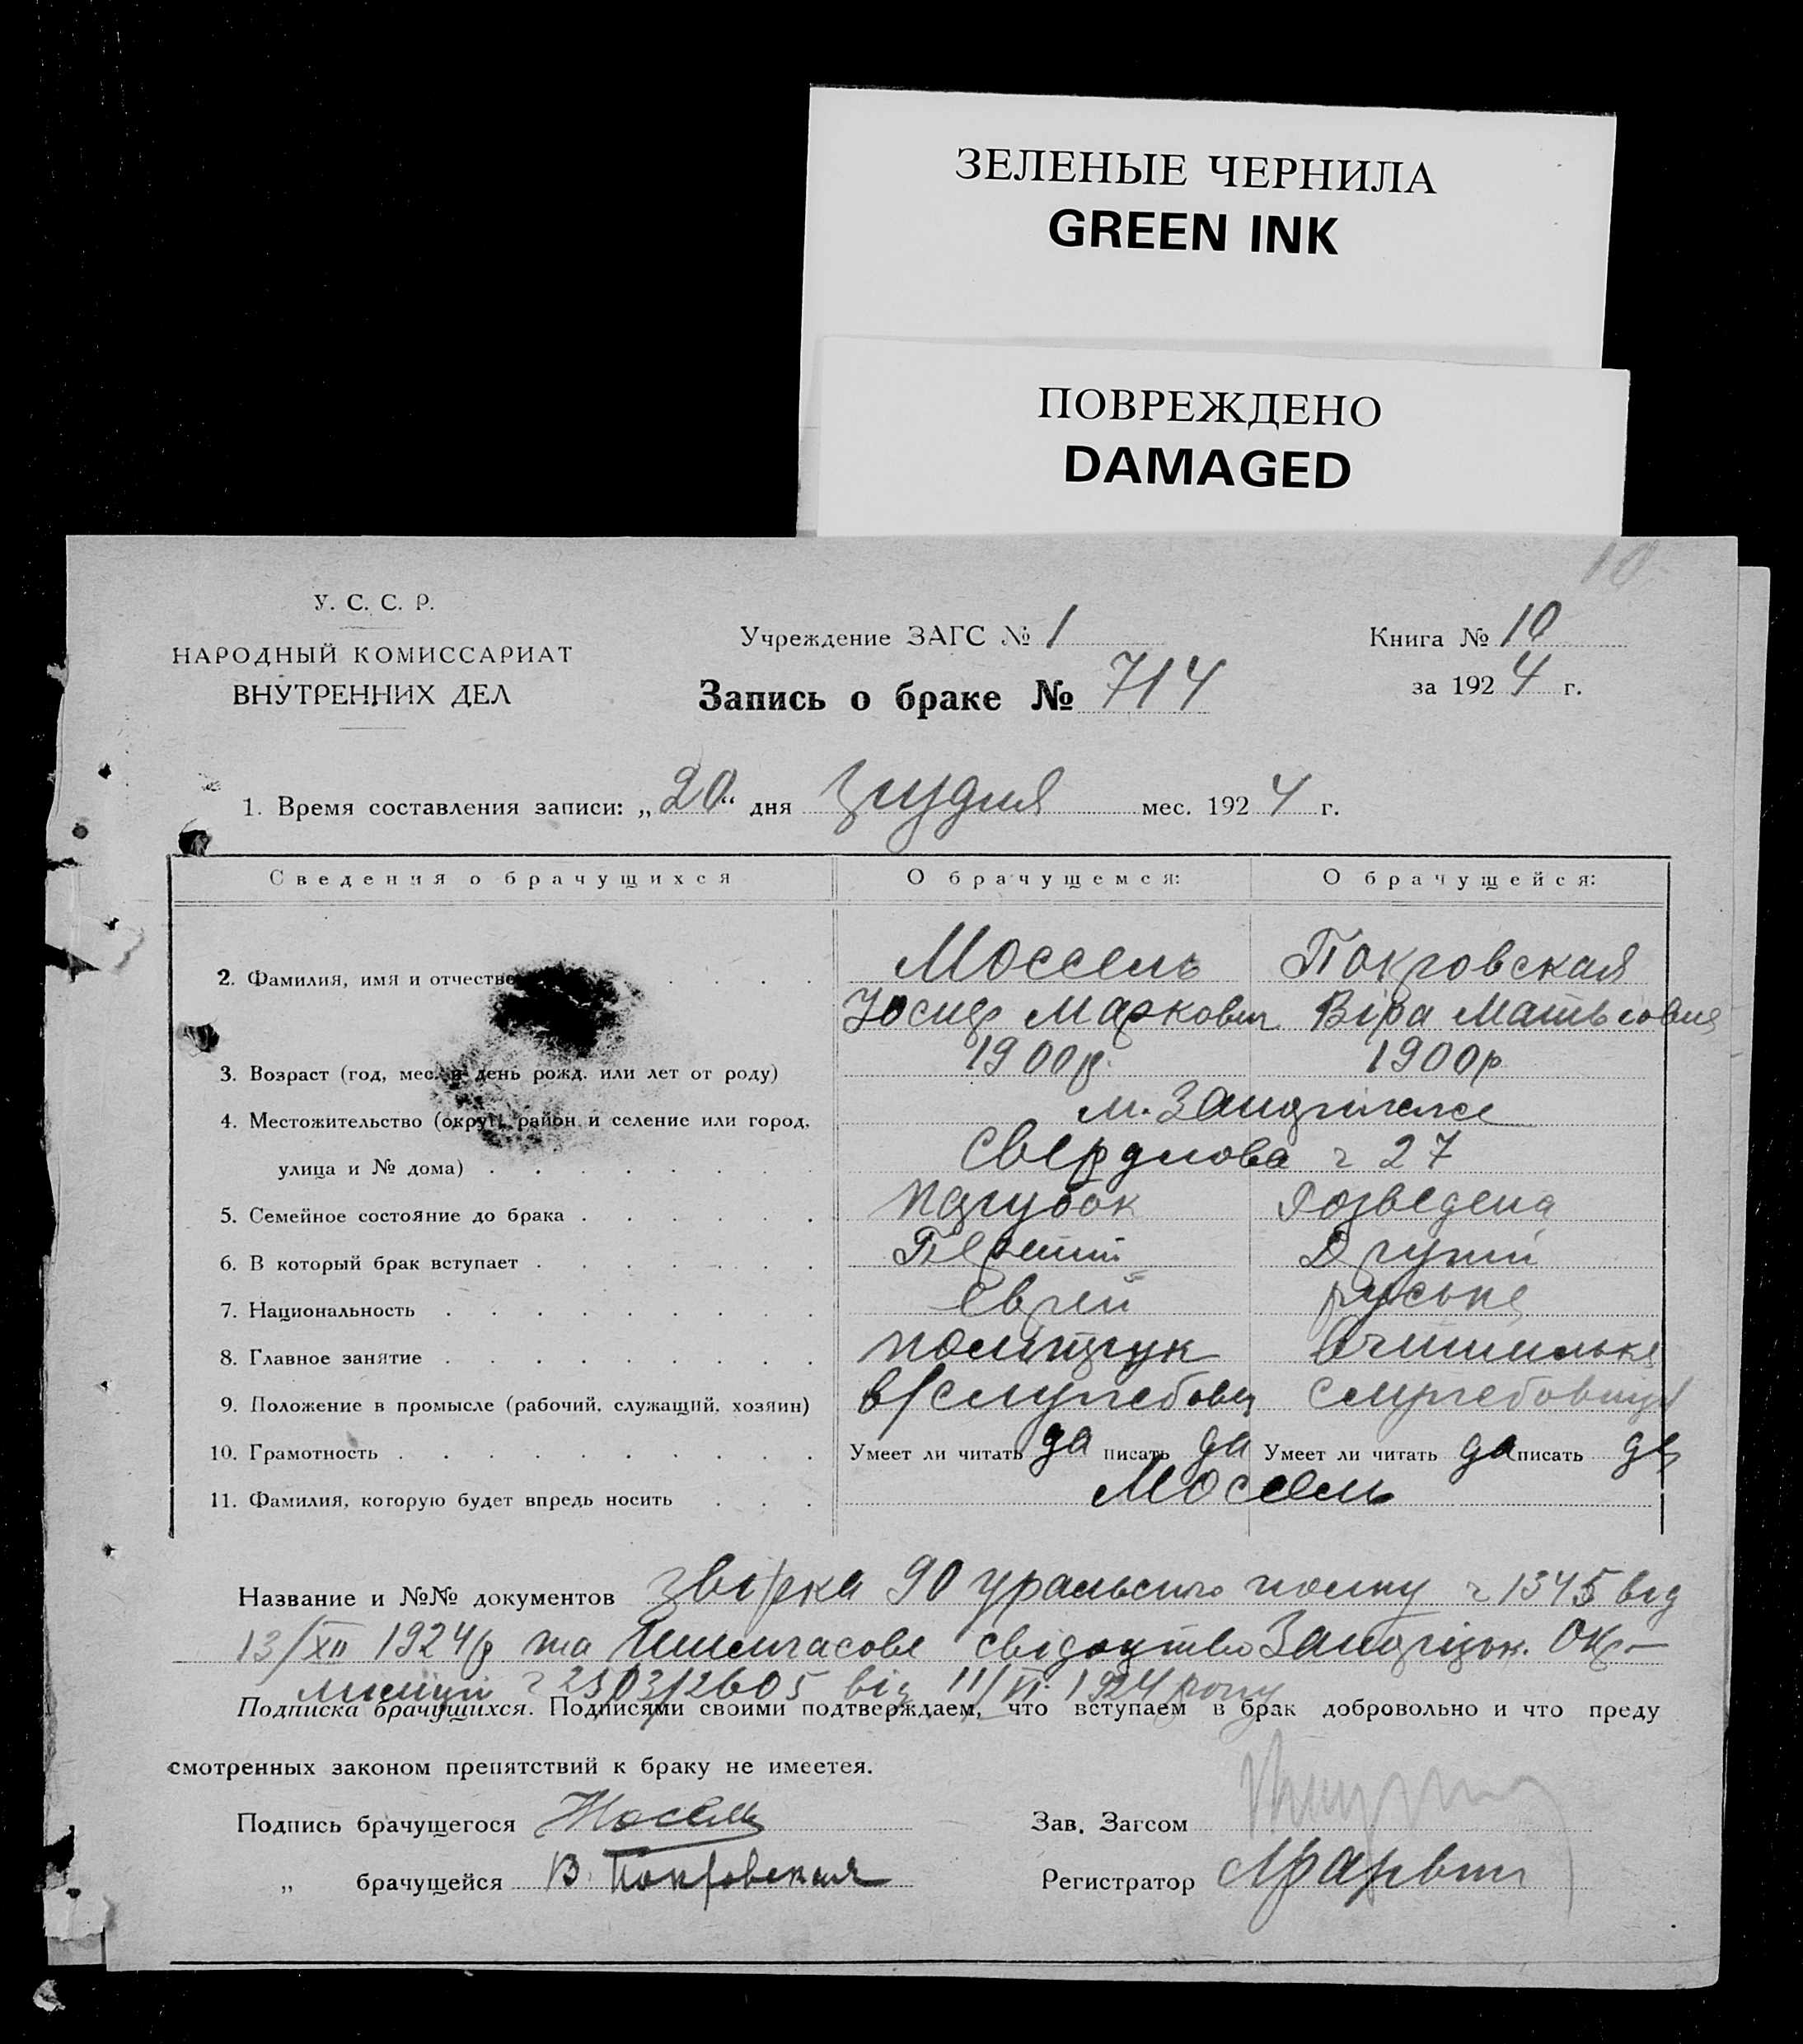 ЗЕЛЕНЫЕ ЧЕРНИЛА
GREEN INK
ПОВРЕЖДЕНО
DAMAGED
10
У. С. С. Р.
НАРОДНЫЙ КОМИССАРИАТ
ВНУТРЕННИХ ДЕЛ
Учреждение ЗАГС № 1
Запись о браке № 714
Книга № 10
за 1924 г.
1. Время составления записи: „20“ дня грудня мес. 1924 г.
Сведения о брачущихся О брачущемся: О брачущейся:
2. Фамилия, имя и отчество Моссель Покровская
Иосиф Маркович Віра Матвіовна
3. Возраст (год, мес. и день рожд. или лет от роду) 1900р. 1900р
4. Местожительство (округ, район и селение или город, м. Запоріжжє
улица и № дома) Свердлова ч 27
5. Семейное состояние до брака парубок Розведена
6. В который брак вступает Перший Другий
7. Национальность Еврей руська
8. Главное занятие політрук Вчителька
9. Положение в промысле (рабочий, служащий, хозяин) в/службовец службовиця
10. Грамотность Умеет ли читать да писать да Умеет ли читать да писать да
11. Фамилия, которую будет впредь носить Моссель
Название и №№ документов 90 уральского полку ч 1345 від
13/XII 1924р та тимчасове свідоцтво Запоріжськ. Окр–
міліції ч 2503/2605 від 11/VI 1924 року
Подписка брачущихся. Подписями своими подтверждаем, что вступаем в брак добровольно и что преду
смотренных законом препятствий к браку не имеется.
Подпись брачущегося Моссель Зав. Загсом
„ брачущейся В. Покровская Регистратор